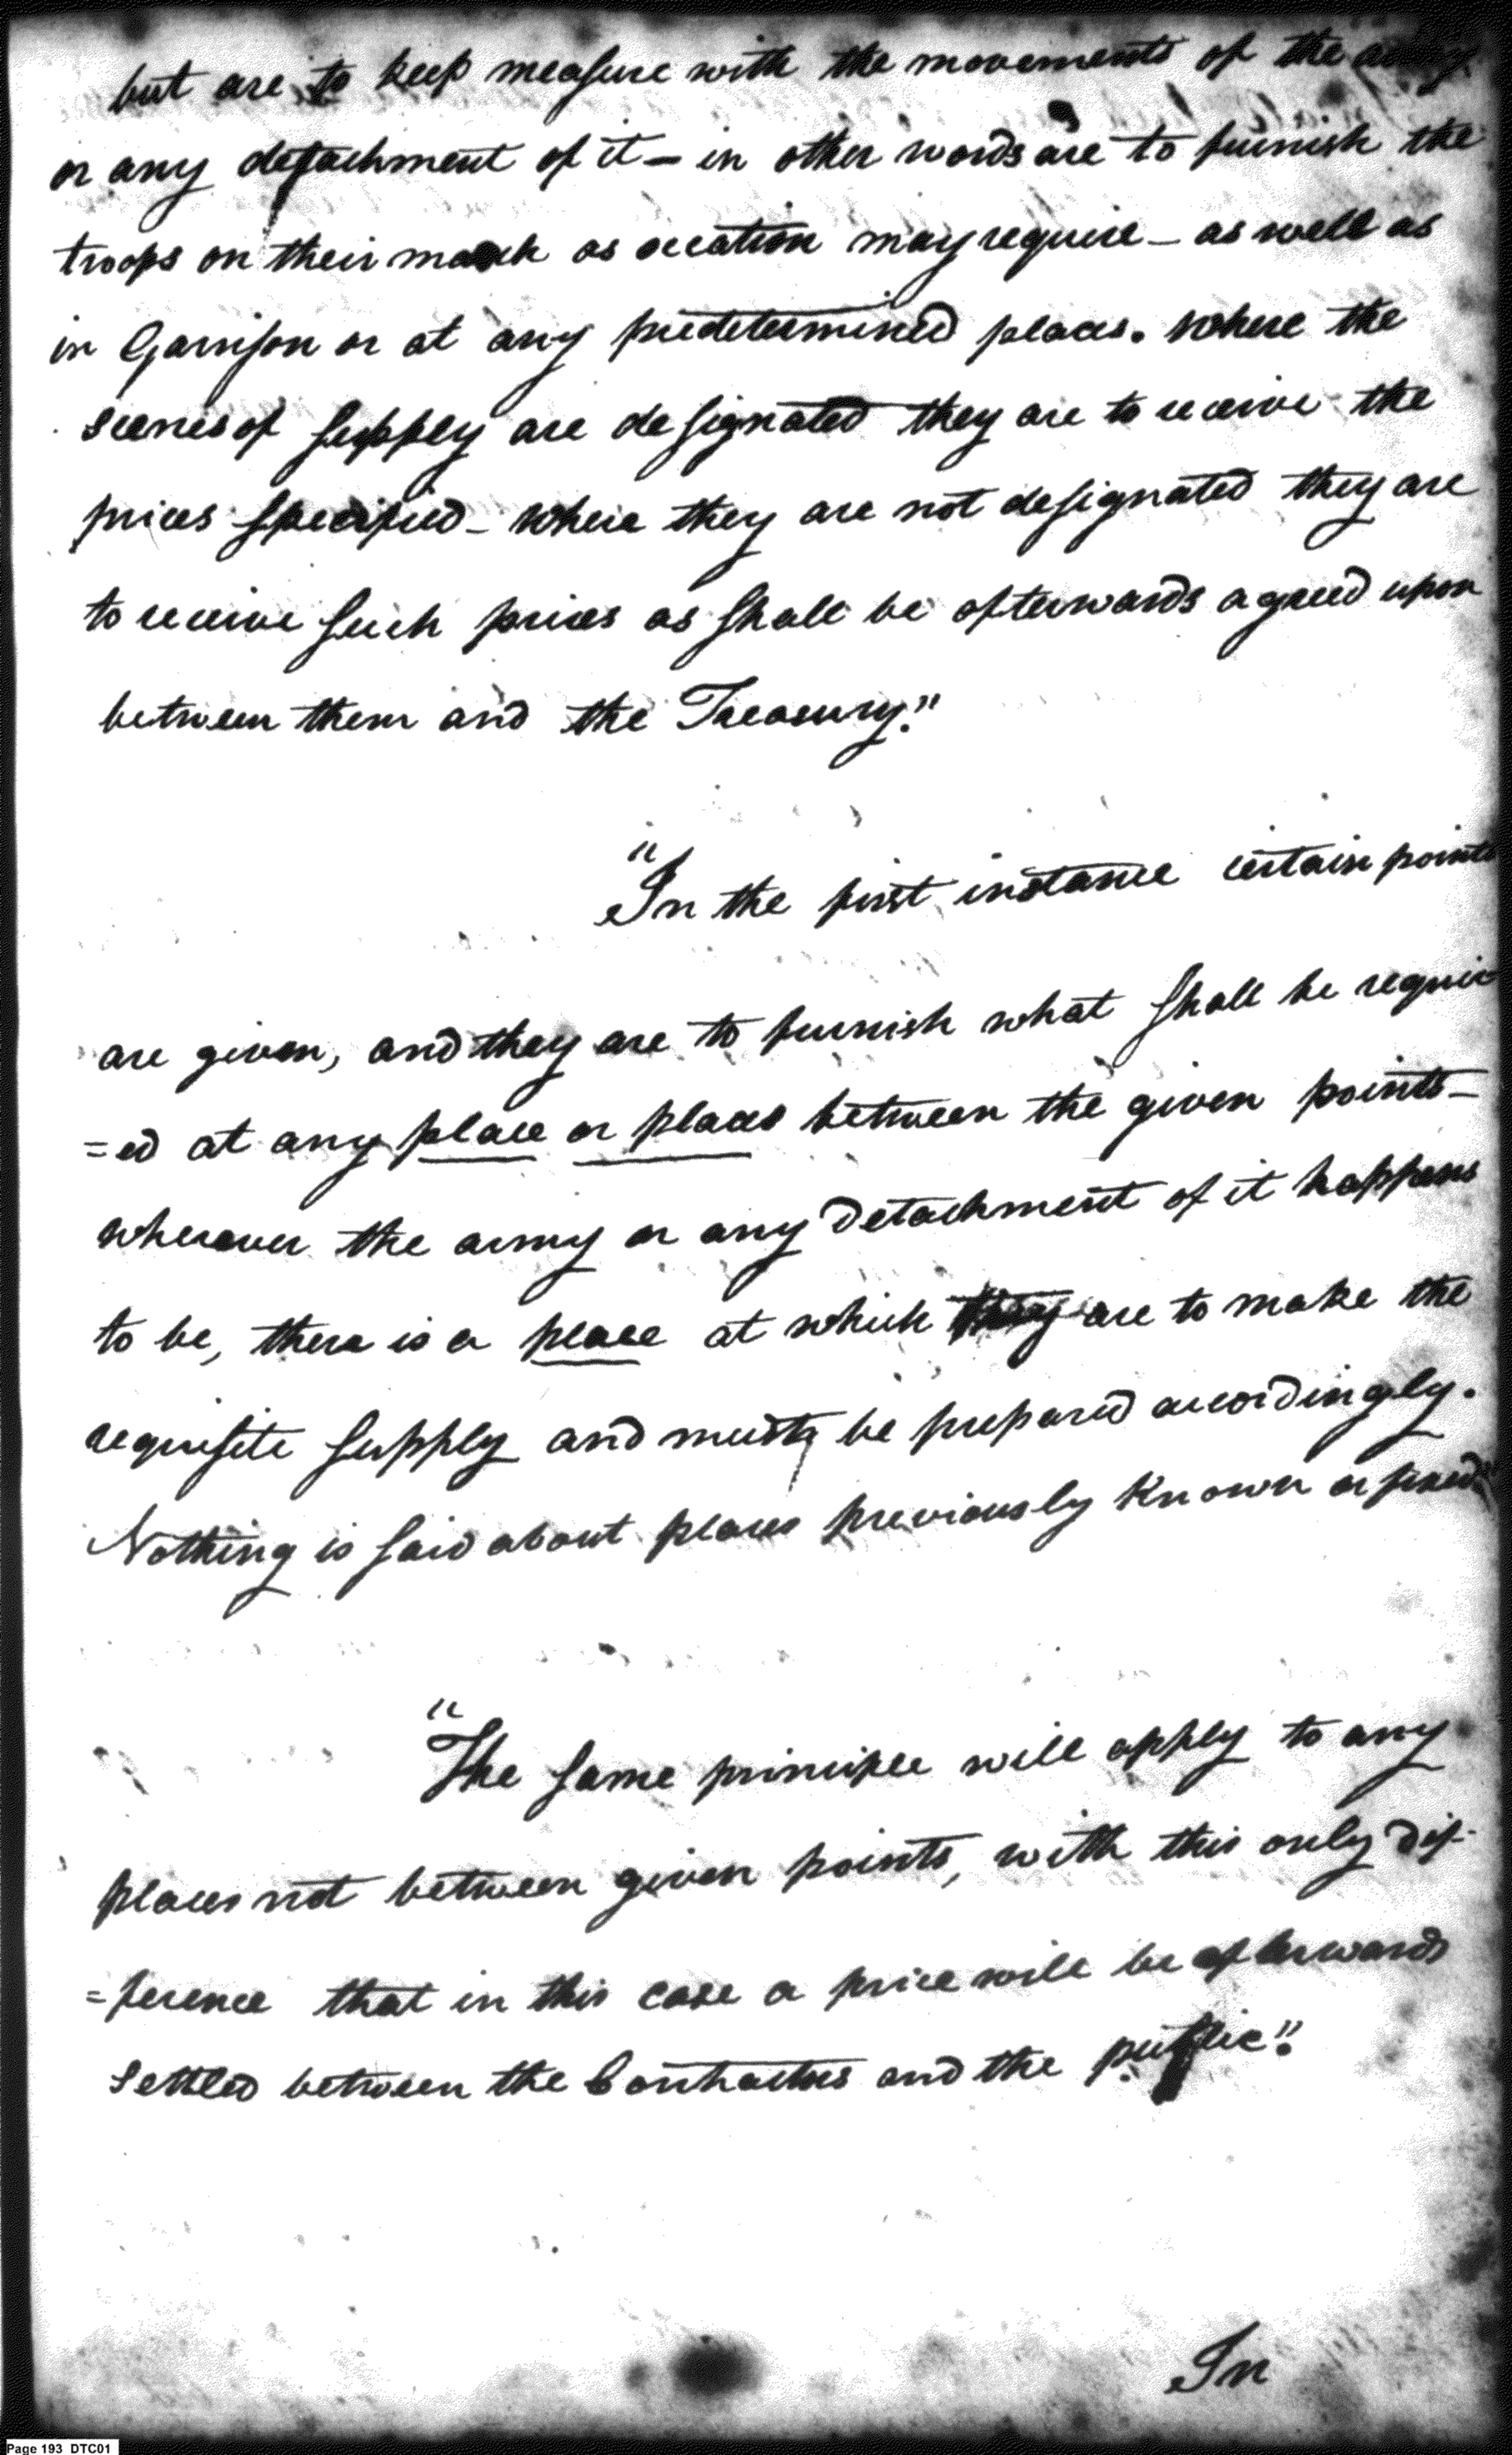 but are to keep measure with the movements of the army
or any detachment of it — in other words are to furnish the
troops on their march as occation may require — as well as
in Garrison or at any predetermined places. where the
scenes of supply are designated they are to receive the
prices specified — where they are not designated they are
to receive such prices as shall be afterwards agreed upon
between them and the Treasury."
"In the first instance certain points
are given, and they are to furnish what shall be requir
=ed at any place or places between the given points —
wherever the army or any detachment of it happens
to be, there is a place at which they are to make the
requisite supply and must be prepared accordingly.
Nothing is said about places previously known or fixed"
"The same principle will apply to any
places not between given points, with this only dif-
=ference that in this case a price will be afterwards
settled between the Contractors and the public."
In
Page 193 DTC01